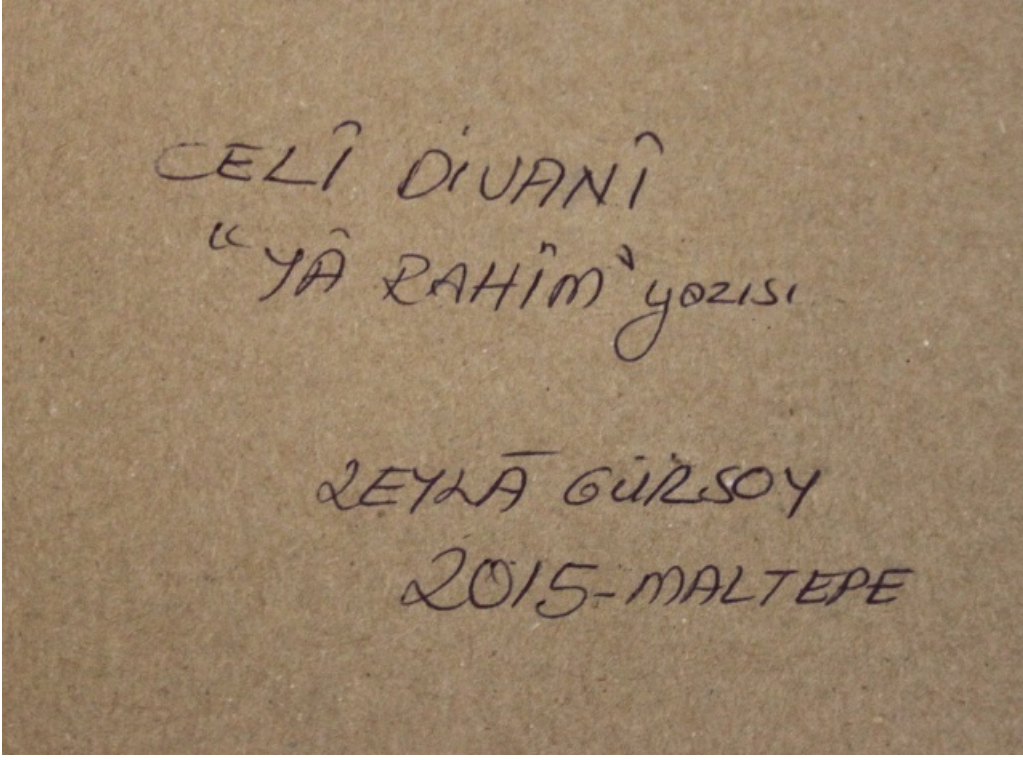 CELÎ DİVANÎ
"YÂ RAHÎM" yazısı
LEYLÂ GÜRSOY
2015-MALTEPE